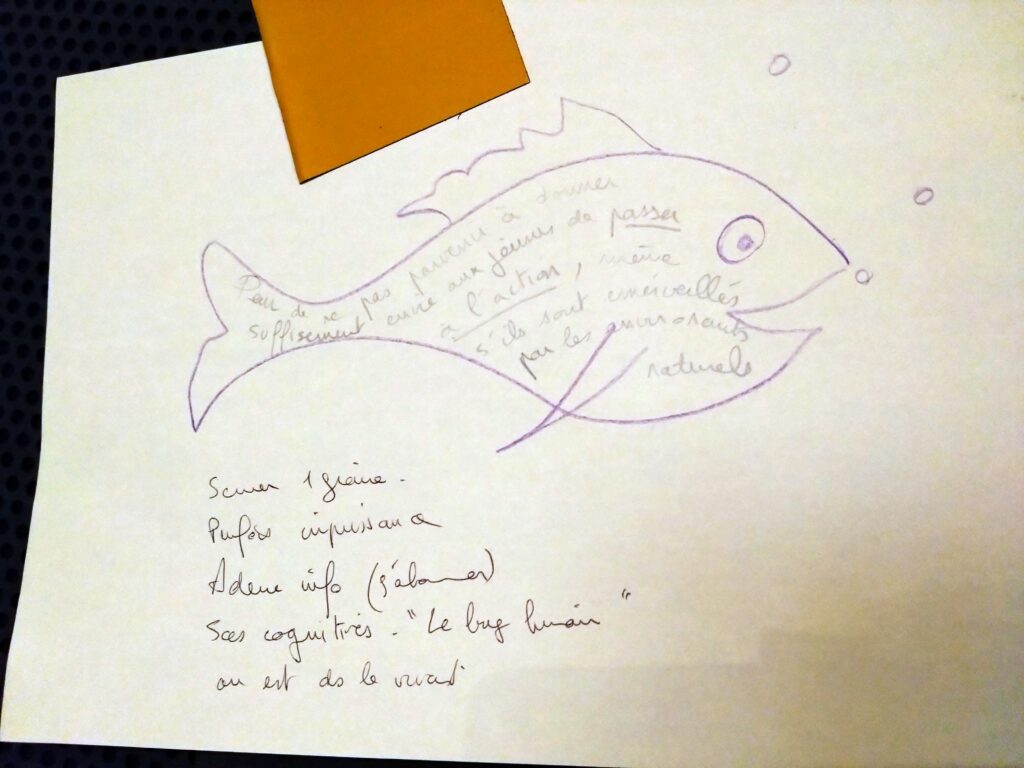 Peur de ne pas parvenir à donner
suffisement envie aux jeunes de passer
à l'action, même
s'ils sont émerveillés
par les environnants
naturels
Semer 1 graine.
Parfois impuissance
Ademe info (s'abonner)
Sces cognitives. "Le bug humain"
on est ds le vivant